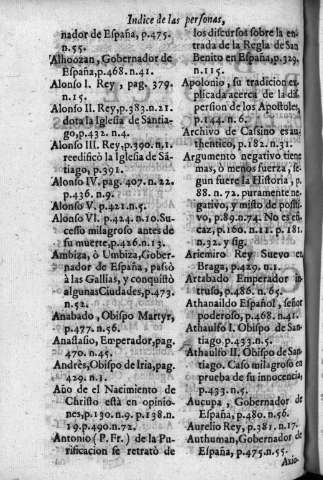 Indice de las personas,
nador de España, p.475.
n.55.
Alhoozan, Gobernador de
España, p.468. n.41.
Alonso I. Rey, pag. 379.
n.15.
Alonso II. Rey, p.383. n.21.
dota la Iglesia de Santia-
go, p.432. n.4.
Alonso III. Rey, p.390. n.1.
reedificò la Iglesia de Sã-
tiago, p.391.
Alonso IV. pag. 407. n.22.
p.436. n.9.
Alonso V. p.421. n.5.
Alonso VI. p.424. n.10. Su-
cesso milagroso antes de
su muerte, p.426. n.13.
Ambiza, ò Umbiza, Gober-
nador de España, passò
à las Gallias, y conquistò
algunas Ciudades, p.473.
n.52.
Anabado, Obispo Martyr,
p.477. n.56.
Anastasio, Emperador, pag.
470. n.45.
Andrès, Obispo de Iria, pag.
429. n.1.
Año de el Nacimiento de
Christo està en opinio-
nes, p.130. n.9. p.138. n.
19. p.490. n.72.
Antonio (P. Fr.) de la Pu-
rificacion se retratò de
los discursos sobre la en-
trada de la Regla de San
Benito en España, p.329.
n.115.
Apolonio, su tradicion ex-
plicada acerca de la dis-
persion de los Apostoles,
p.144. n.6.
Archivo de Cassino es au-
thentico, p.182. n.31.
Argumento negativo tiene
mas, ò menos fuerza, se-
gun fuere la Historia, p.
88. n.72. puramente ne-
gativo, y mixto de positi-
vo, p.89. n.74. No es efi-
caz, p.160. n.11. p. 181.
n.32. y sig.
Ariemiro Rey Suevo en
Braga, p.429. n.1.
Artabado Emperador in-
truso, p.486. n.65.
Athanaildo Español, señor
poderoso, p.468. n.41.
Athaulfo I. Obispo de San-
tiago p.433. n.5.
Athaulfo II. Obispo de San-
tiago. Caso milagroso en
prueba de su innocencia,
p.433. n.5.
Aucupa, Gobernador de
España, p.480. n.56.
Aurelio Rey, p.381. n.17.
Authuman, Gobernador de
España, p.475. n.55.
Auxo-